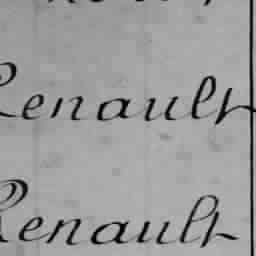 Renault
Renault